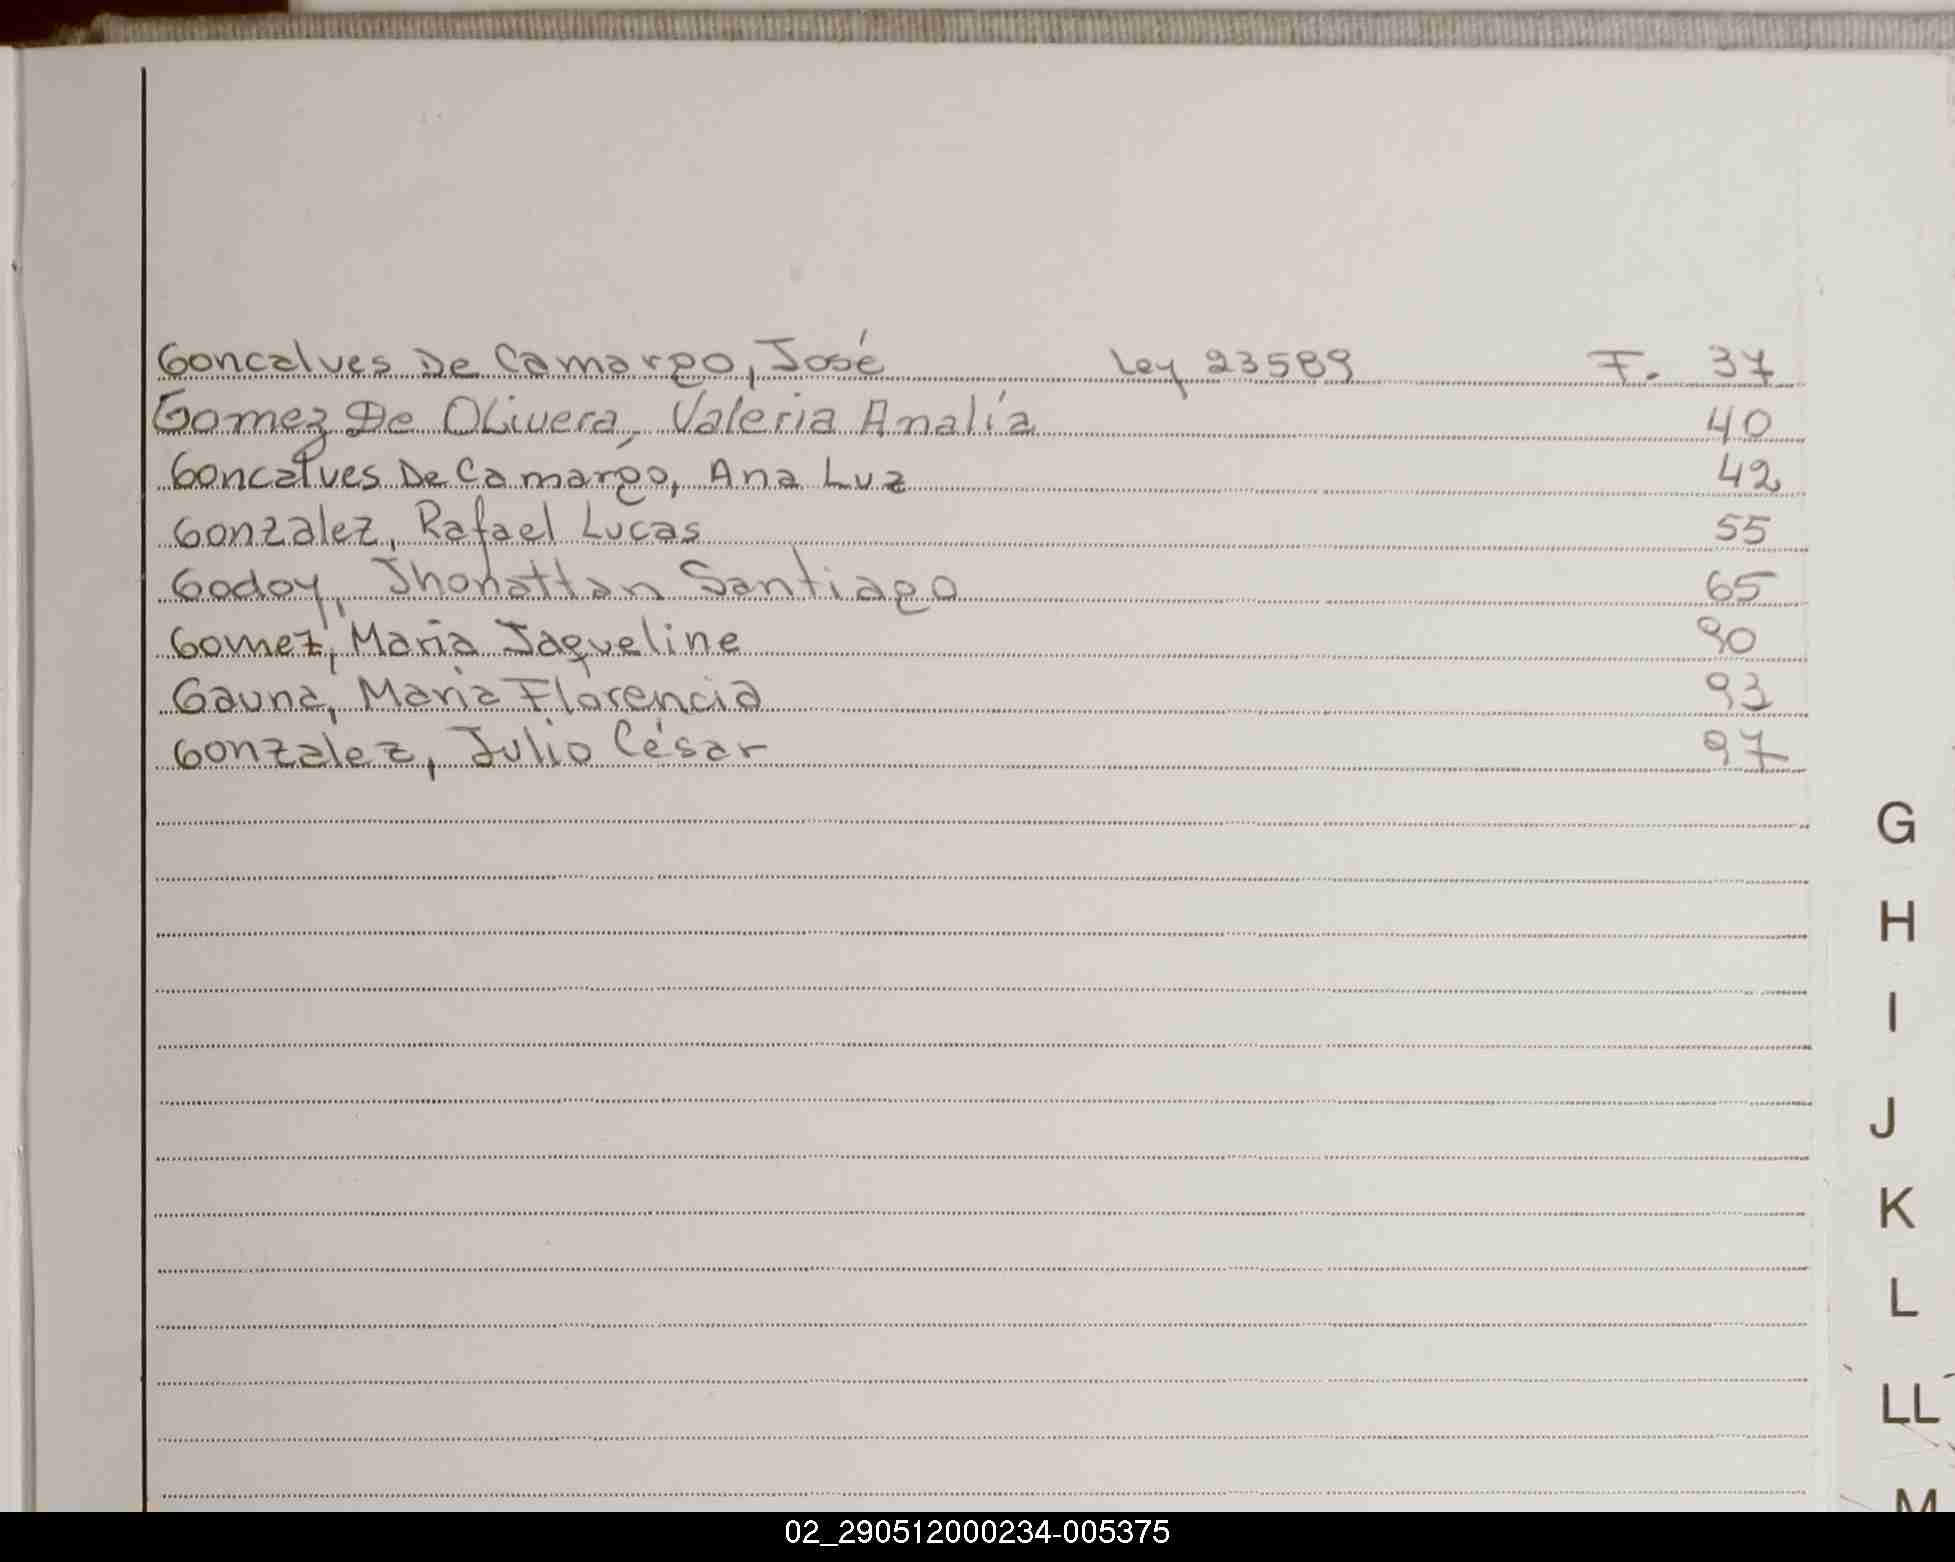 Goncalves De Camargo, José Ley 23589 F. 37
Gomez De Olivera, Valeria Analía 40
Goncalves De Camargo, Ana Luz 42
Gonzalez, Rafael Lucas 55
Godoy, Jhonattan Santiago 65
Gomez, Maria Jaqueline 90
Gauna, Maria Florencia 93
Gonzalez, Julio César 97
G
H
I
J
K
L
LL
M
02_290512000234-005375